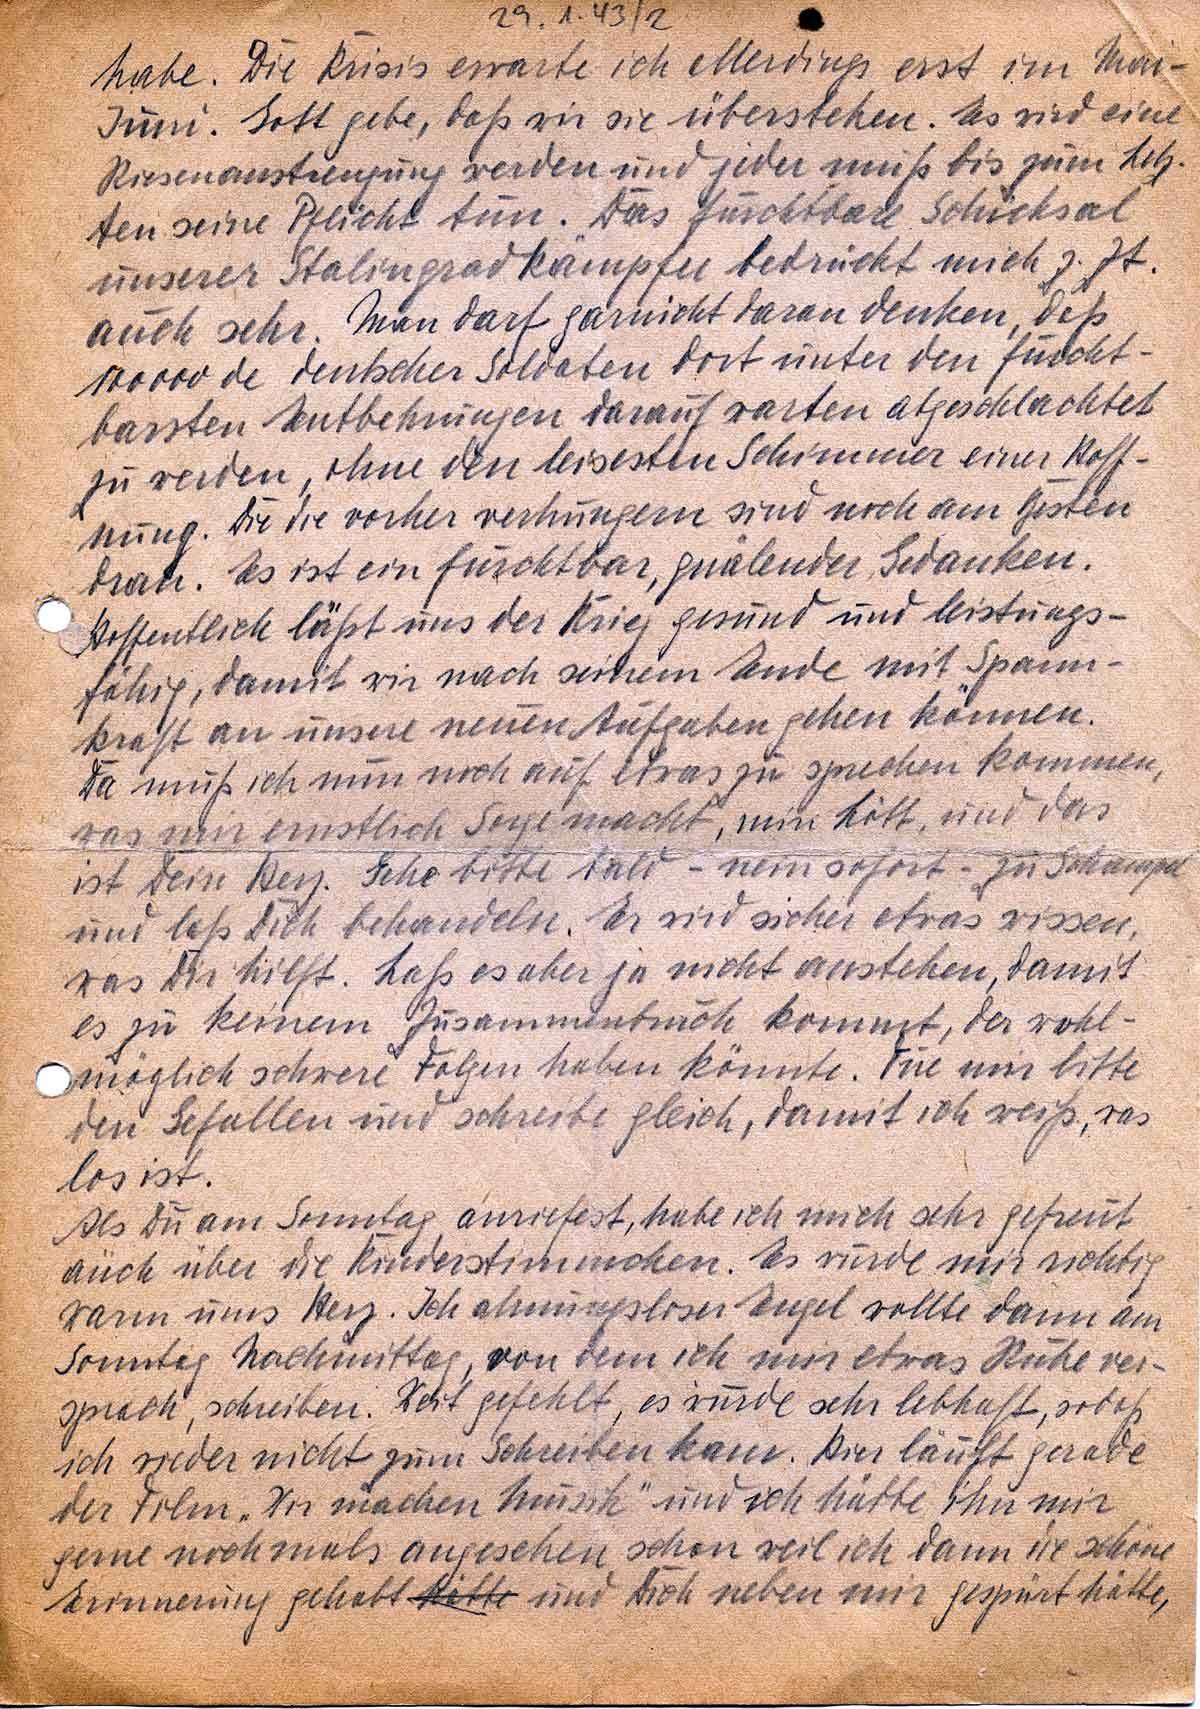 29.1.43/2
habe. Die Krisis erwarte ich allerdings erst im Mai-
Juni. Gott gebe, daß wir sie überstehen. Es wird eine
Riesenanstrengung werden und jeder muß bis zum Letz-
ten seine Pflicht tun. Das furchtbare Schicksal
unserer Stalingradkämpfer bedrückt mich z. Zt.
auch sehr. Man darf garnicht daran denken, daß
100000 de deutscher Soldaten dort unter den furcht-
barsten Entbehrungen darauf warten abgeschlachtet
zu werden, ohne den leisesten Schimmer einer Hoff-
nung. Die die vorher verhungern sind noch am besten
dran. Es ist ein furchtbar, quälender Gedanken.
Hoffentlich läßt uns der Krieg gesund und leistungs-
fähig, damit wir nach seinem Ende mit Spann-
kraft an unsere neuen Aufgaben gehen können.
Da muß ich nun noch auf etwas zu sprechen kommen,
was mir ernstlich Sorge macht, min Lött, und das
ist Dein Herz. Gehe bitte bald - nein sofort - zu
und laß Dich behandeln. Er wird sicher etwas wissen,
was Dir hilft. Laß es aber ja nicht anstehen, damit
es zu keinem Zusammenbruch kommt, der wohl-
möglich schwere Folgen haben könnte. Tue mir bitte
den Gefallen und schreibe gleich, damit ich weiß, was
los ist.
Als Du am Sonntag anriefest, habe ich mich sehr gefreut
auch über die Kinderstimmchen. Es wurde mir richtig
warm ums Herz. Ich ahnungsloser Engel wollte dann am
Sonntag Nachmittag, von dem ich mir etwas Ruhe ver-
sprach, schreiben. Weit gefehlt, es wurde sehr lebhaft, sodaß
ich wieder nicht zum Schreiben kam. Hier läuft gerade
der Film „Wir machen Musik" und ich hätte ihn mir
gerne nochmals angesehen schon weil ich dann die schöne
Erinnerung gehabt hätte und Dich neben mir gespürt hätte,